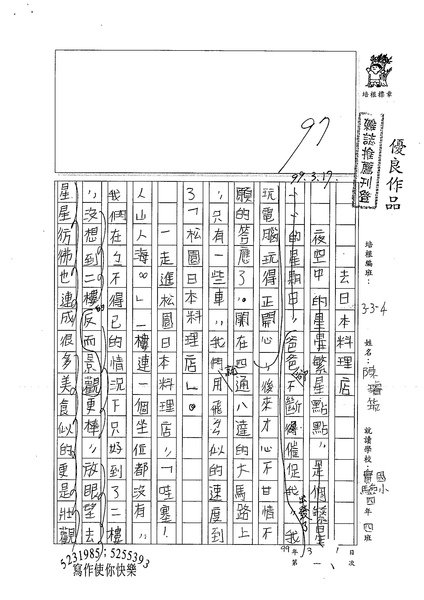 優良作品
培根標章
雜誌推薦刊登
培根編班：3-3-4
姓名：陳
就讀學校：
國小
四年四班
97
99.3.17.
去日本料理店
夜空中的星星繁星點點，是個繁星
卜卜的星期日，爸爸不斷催促我，我
玩電腦玩得正開心，後來才心不甘情不
願的答應了。開在四通八達的大馬路上
，只有一些車，我們用飛的似的速度到
了「松園日本料理店」。
一走進松園日本料理店，「哇塞！
人山人海。」一樓連一個坐位都沒有，
我們在ㄅ不得已的情況下只好到了二樓
，沒想到二樓反而景觀更棒，放眼望去
星星彷彿也連成很多美食似的更是壯觀
99年3月1日
第一次
5231985；5255393
寫作使你快樂